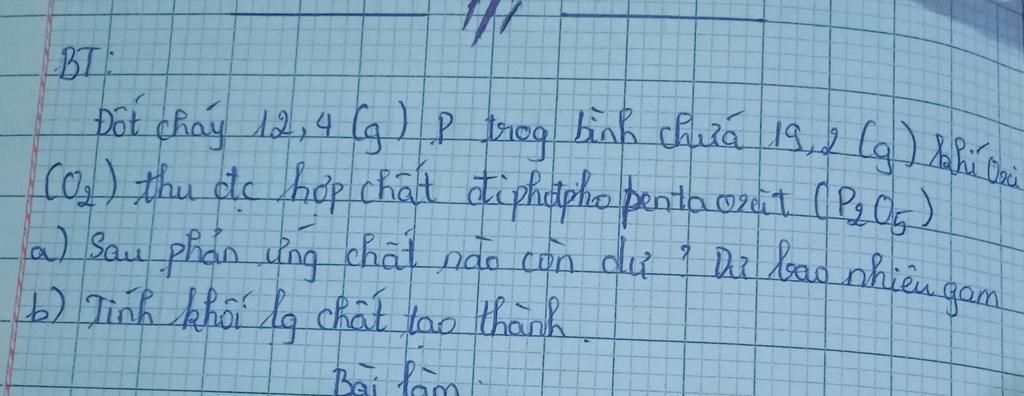 BT:
Đốt cháy 12,4 (g) P trog bình chứa 19,2 (g) khí Oxi
(O₂) thu đc hợp chất điphotpho pentaoxit (P₂O₅)
a) Sau phản ứng chất nào còn dư? Dư bao nhiêu gam
b) Tính khối lg chất tạo thành.
Bài làm: